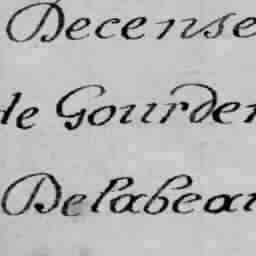 Decense
de Gourder
Delabeau